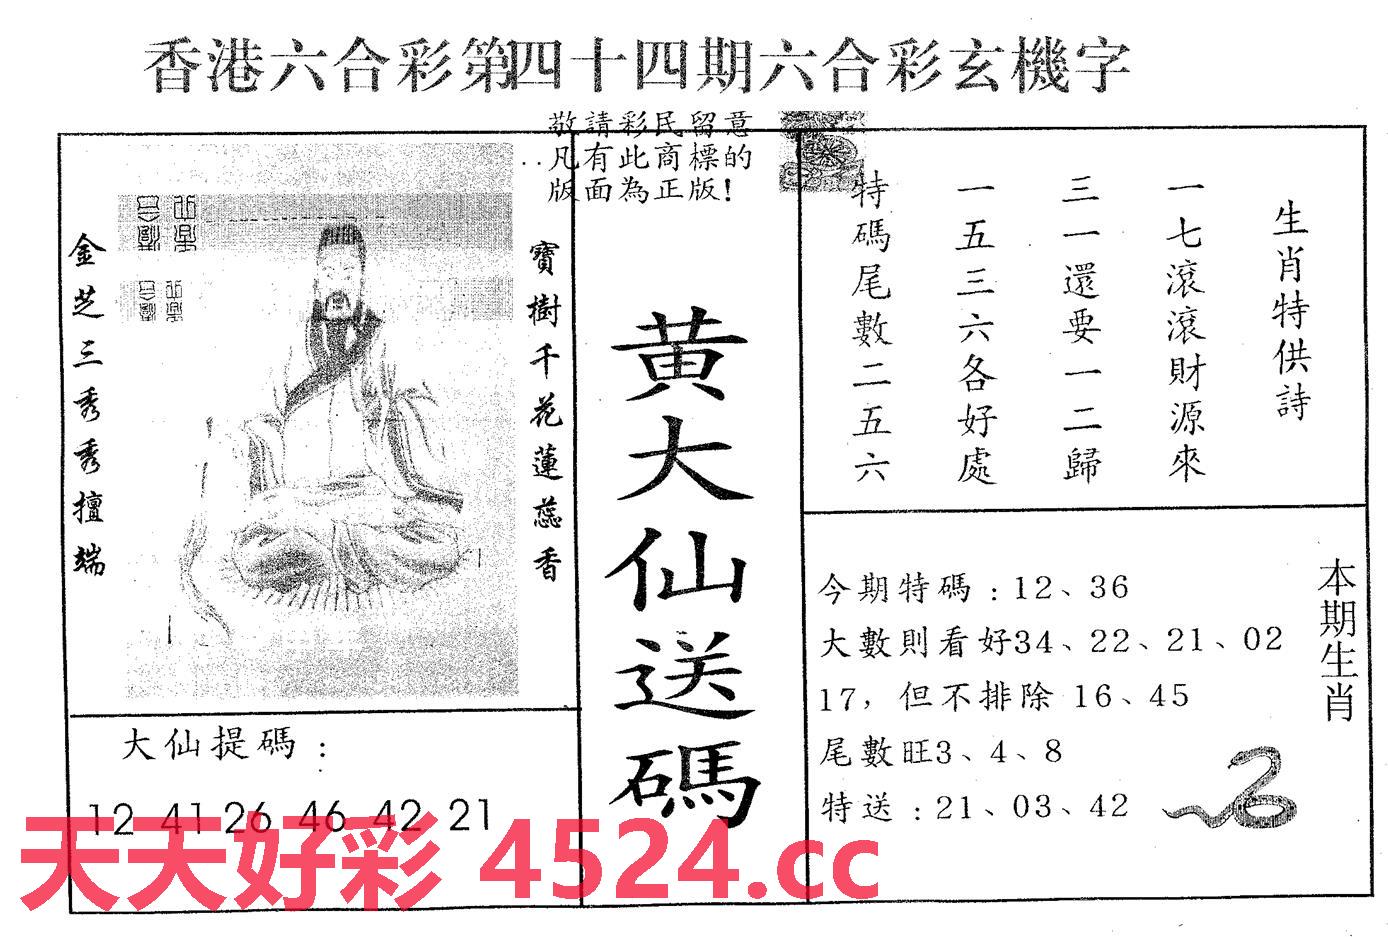 香港六合彩第四十四期六合彩玄機字
敬請彩民留意
凡有此商標的
版面為正版!
金芝三秀秀擅端
寶樹千花蓮蕊香
黄大仙送碼
生肖特供詩
一七滾滾財源來
三一還要一二歸
一五三六各好處
特碼尾數二五六
大仙提碼：
12 41 26 46 42 21
本期生肖
今期特碼：12、36
大數則看好34、22、21、02
17，但不排除 16、45
尾數旺3、4、8
特送：21、03、42
天天好彩 4524.cc